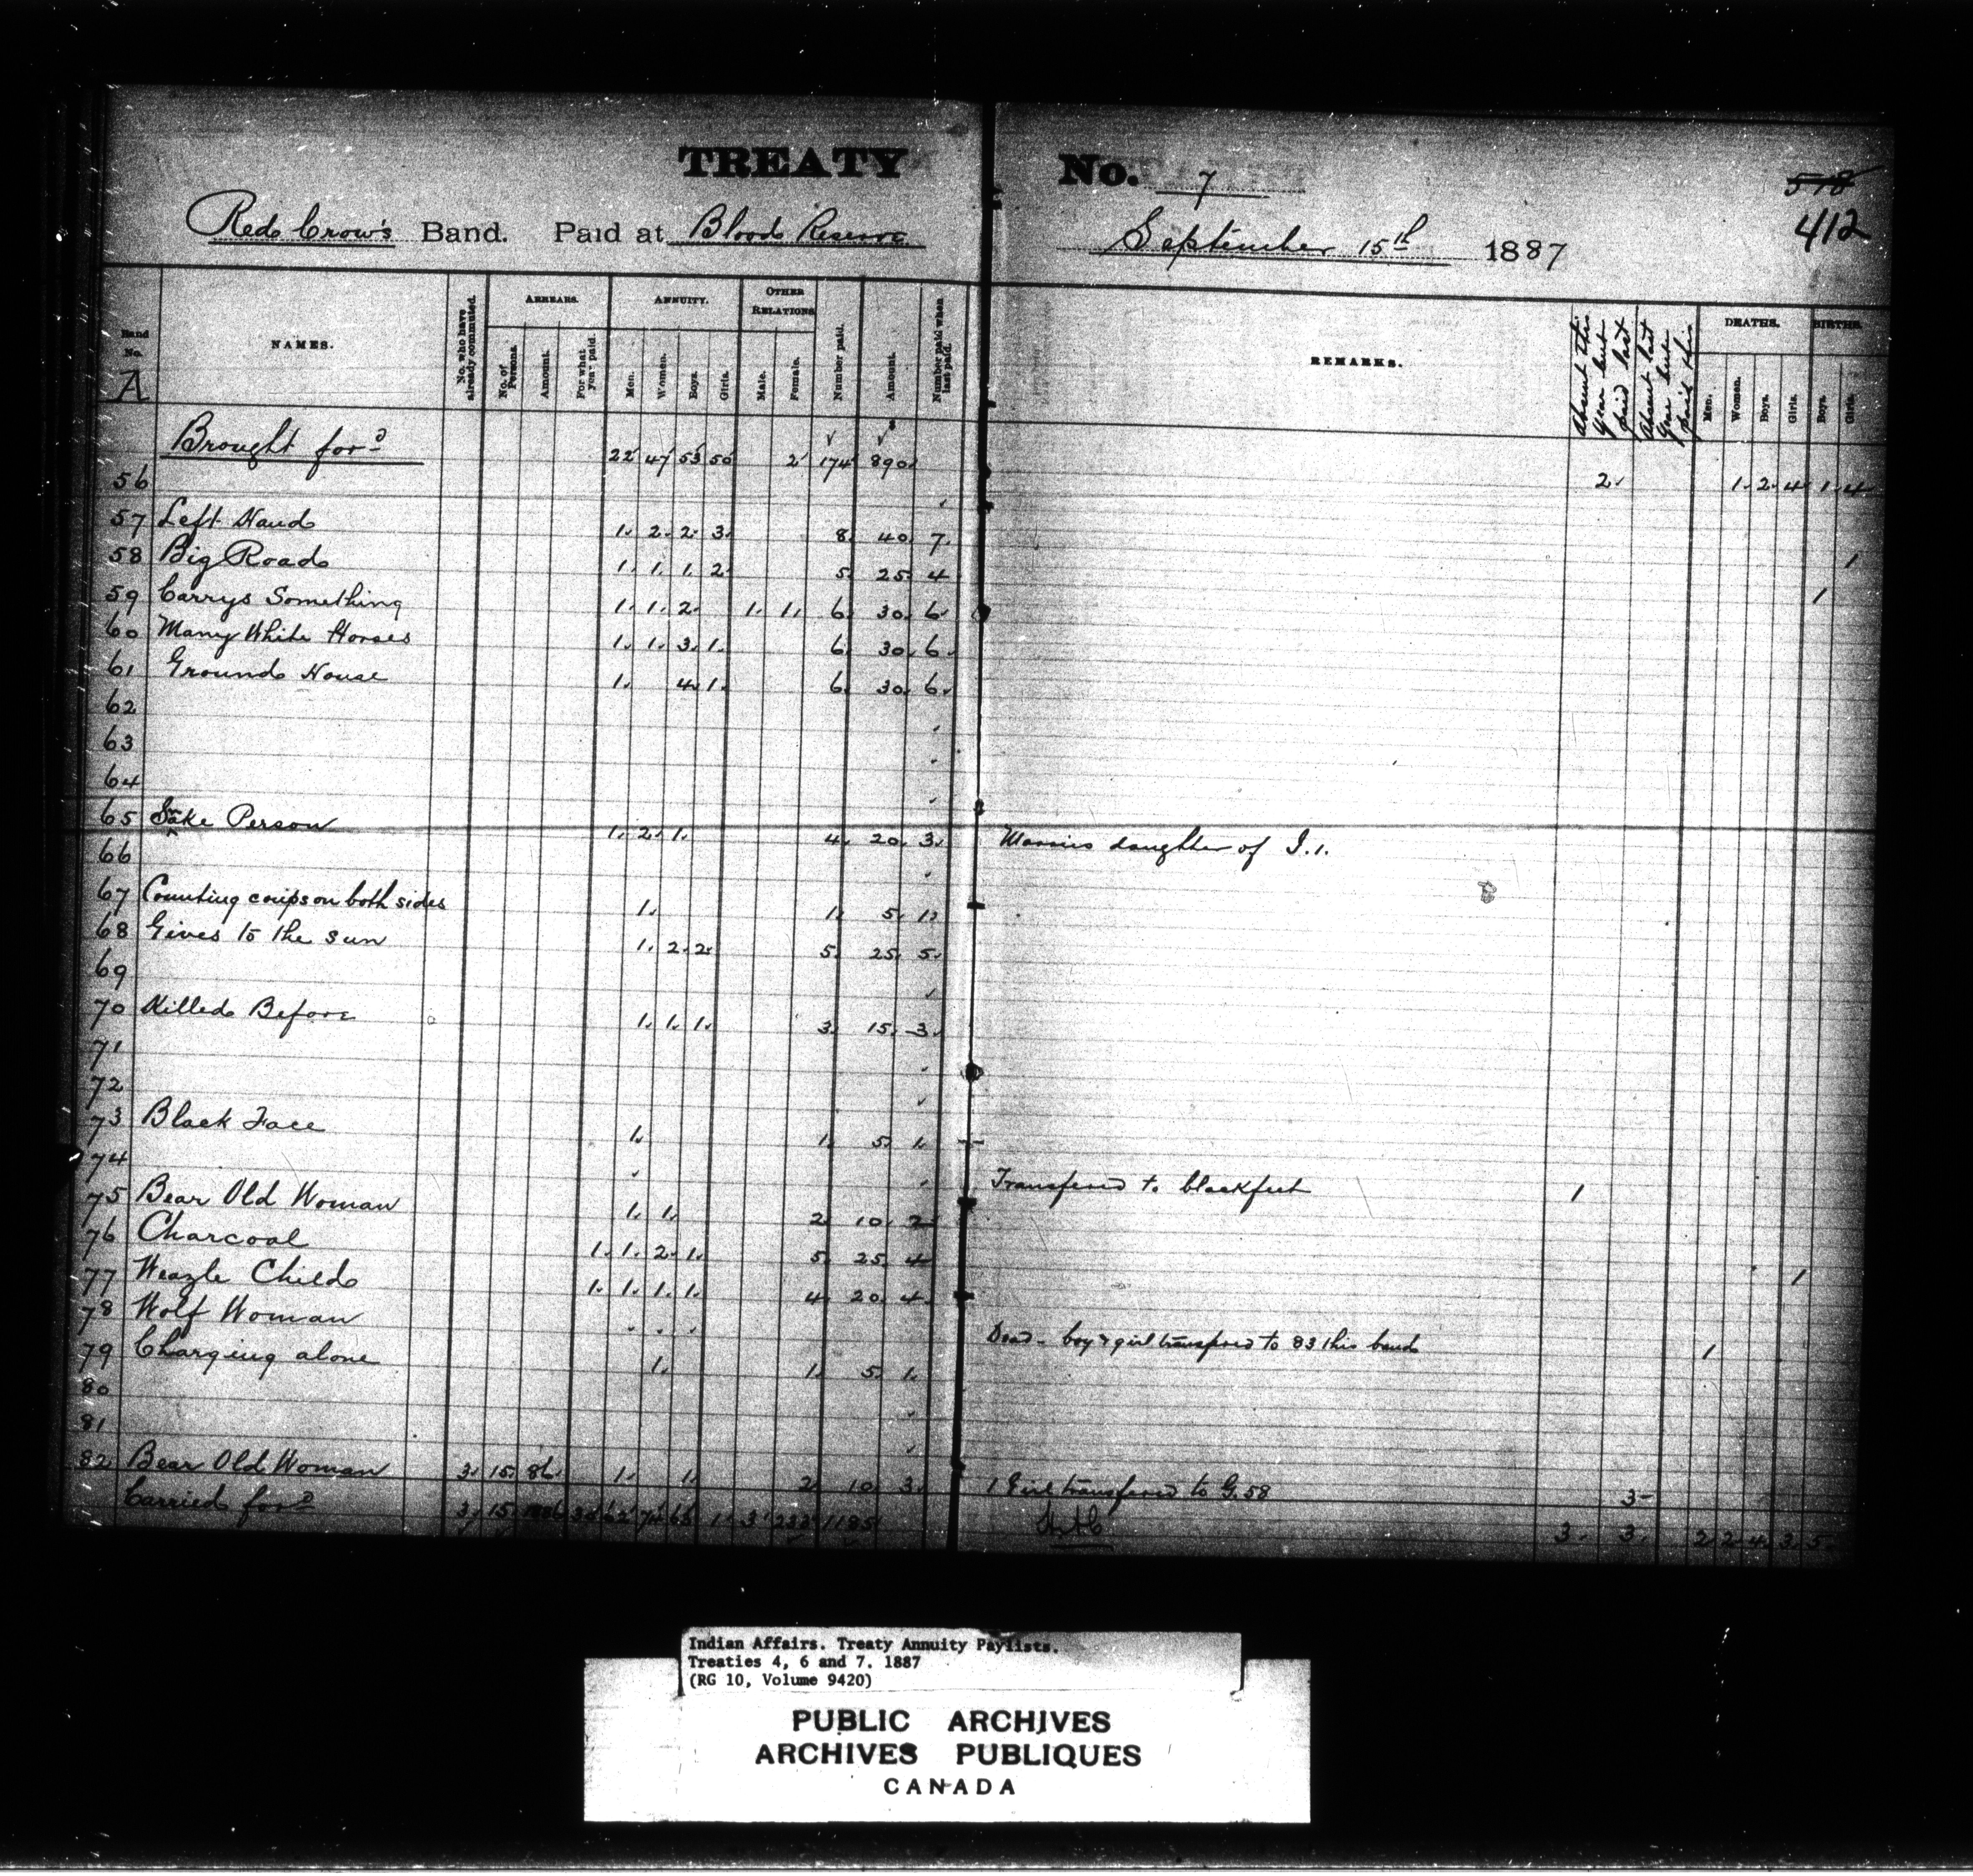 TREATY No. 7
578
412
Red Crow's Band. Paid at Blood Reserve September 15th 1887
Band No. A
NAMES.
No. who have already commuted.
ARREARS.
No. of Persons.
Amount.
For what year paid.
ANNUITY.
Men.
Women.
Boys.
Girls.
OTHER RELATIONS
Male.
Female.
Number paid.
Amount.
Number paid when last paid.
REMARKS.
Absent this year but paid last
Absent last year but paid this
DEATHS.
Men.
Women.
Boys.
Girls.
BIRTHS.
Boys.
Girls.
Brought ford 22 47 53 50 2 174 890 2 1 2 4 1 4
56
57 Left Hand 1 2 2 3 8 40 7 1
58 Big Road 1 1 1 2 5 25 4 1
59 Carrys Something 1 1 2 1 1 6 30 6
60 Many White Horses 1 1 3 1 6 30 6
61 Ground House 1 4 1 6 30 6
62
63
64
65 Snake Person 1 2 1 4 20 3 Marries daughter of I.1.
66
67 Counting coups on both sides 1 1 5 1
68 Gives to the sun 1 2 2 5 25 5
69
70 Killed Before 1 1 1 3 15 3
71
72
73 Black Face 1 1 5 1
74 Transfered to blackfeet 1
75 Bear Old Woman 1 1 2 10 2
76 Charcoal 1 1 2 1 5 25 4 1
77 Weazle Child 1 1 1 1 4 20 4
78 Wolf Woman Dead - boy & girl transfered to 83 this band 1
79 Charging alone 1 1 5 1
80
81
82 Bear Old Woman 3 15 86 1 1 2 10 3 1 Girl transfered to G.58 3
Carried ford 3 15 1886 3 3 2 2 4 3 5
Indian Affairs. Treaty Annuity Paylists.
Treaties 4, 6 and 7. 1887
(RG 10, Volume 9420)
PUBLIC ARCHIVES
ARCHIVES PUBLIQUES
CANADA